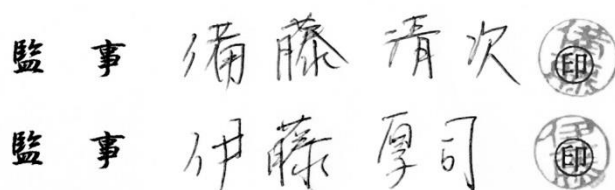 監事 備藤 清次 ㊞
監事 伊藤 厚司 ㊞